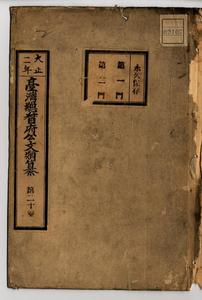 大正二年
臺灣總督府公文類纂
第二十卷
永久保存
第一門
第二門